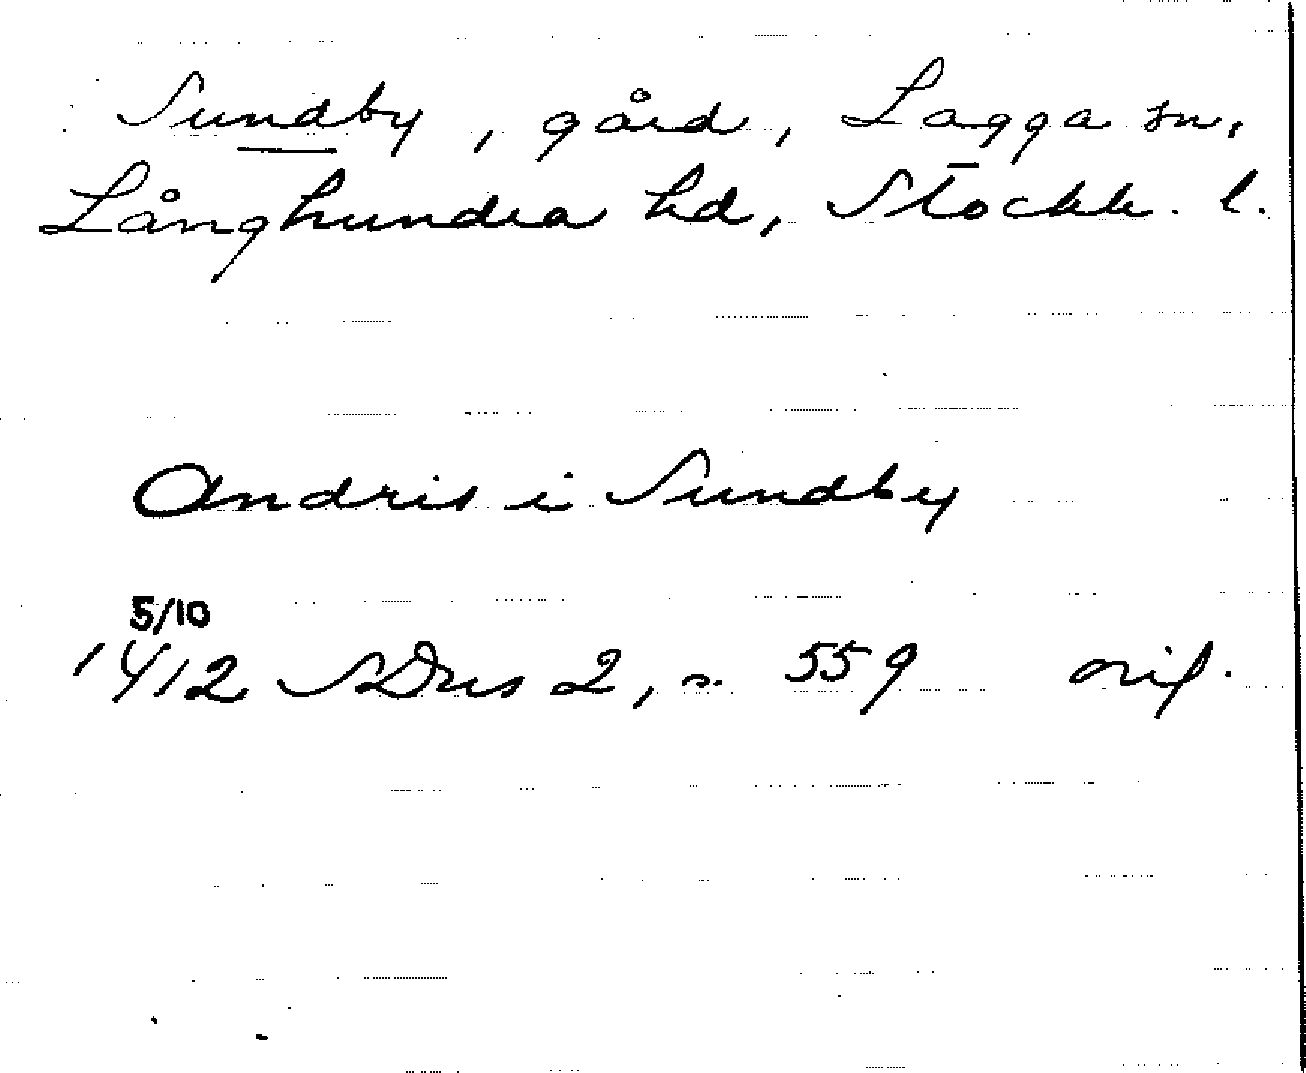 Sundby, gård, Lagga sn,
Långhundra hd, Stockh. l.
Andris i Sundby
5/10
1412 SDns 2, s. 559 orig.